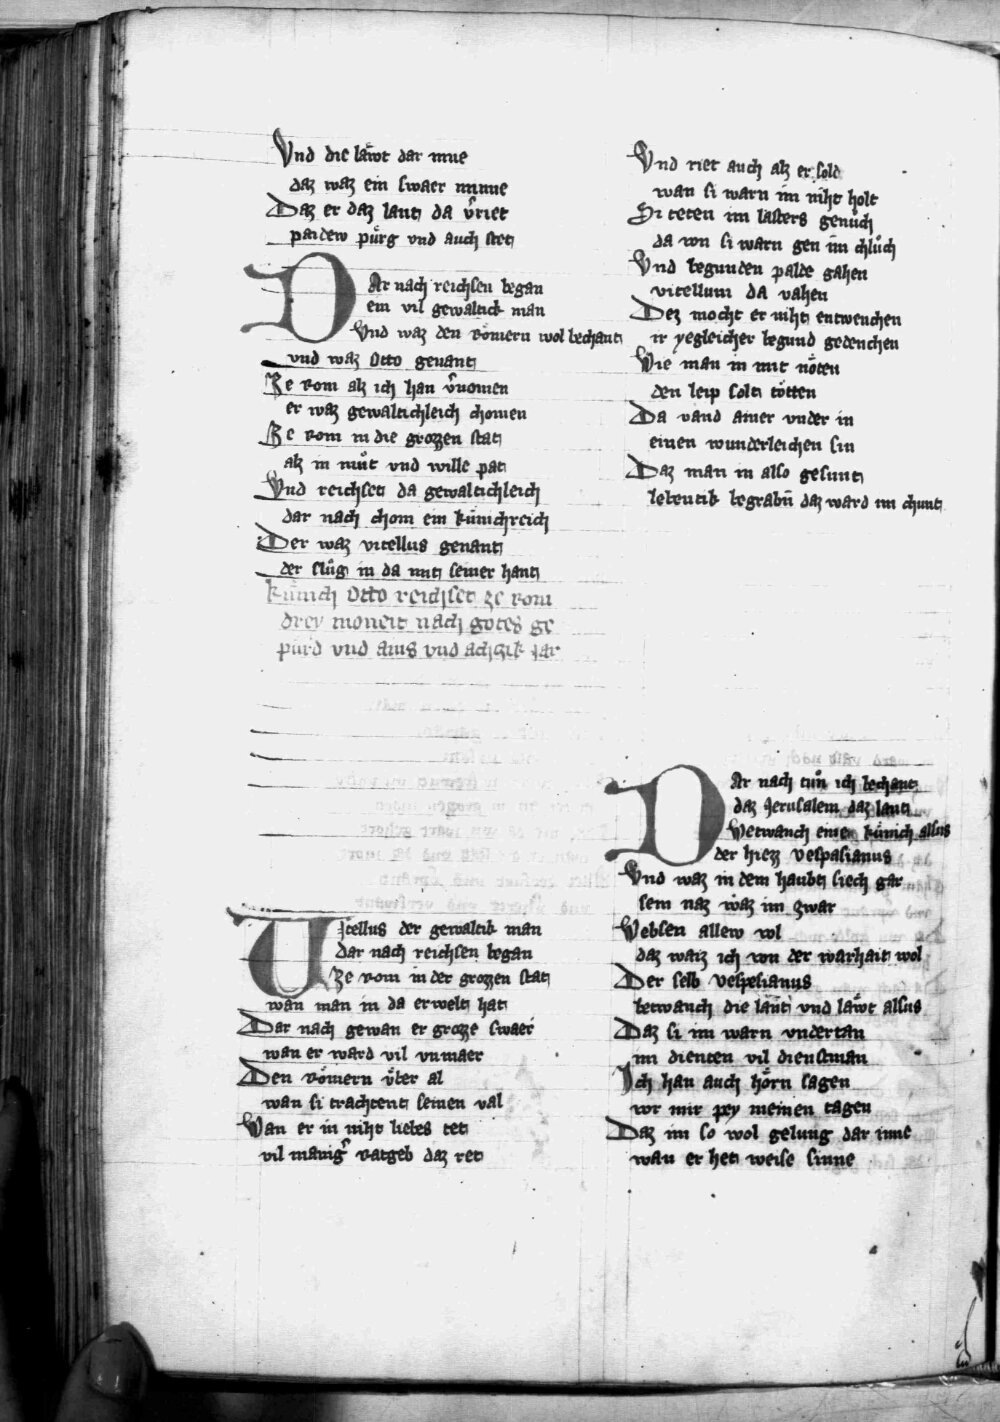 Vnd die laͤwt dar inne
daz waz ein swaer minne
Daz er daz lant da v̂riet
paidew puͤrg vnd auch stet
DAr nach reichsen began
ein vil gewaltick man
Vnd waz den Roͤmern wol bechant
vnd waz Otto genant
Ze Rom alz ich han v̂nomen
er waz gewaltichleich chomen
Ze Rom in die grozzen stat
alz in muͤt vnd wille pat
Vnd reichset da gewaltichleich
dar nach chom ein kuͤnichreich
Der waz vitellus genant
der sluͤg in da mit seiner hant
kuͤnich Otto reichset ze Rom
drey moneit nach gotes ge
purd vnd ains vnd achzik jar
VItellus der gewaltik man
dar nach reichsen began
Ze Rom in der grozzen stat
wan man in da erwelt hat
Dar nach gewan er grozze swaer
wan er ward vil vnmaer
Den Roͤmern uͤber al
wan si trachtent seinen val
Wan er in niht liebes tet
vil manig̉ Ratgeb daz ret
Vnd riet auch alz er sold
wan si warn im niht holt
Si teten im lasters genuͤch
da von si warn gen im chluͤch
Vnd begunden palde gahen
vitellum da vahen
Dez mocht er niht entwenchen
ir yegleicher begund gedenchen
Wie man in mit noͤten
den leip solt toͤtten
Da vand ainer vnder in
einen wunderleichen sin
Daz man in also gesunt
lebentik begrabn̄ daz ward im chunt
DAr nach tuͤn ich bechant
daz Jerusalem daz lant
Betwanch eine kuͤnich allsus
der hiezz vespasianus
Vnd waz in dem haubt siech gar
sein naz waͤz im zwar
Websen allew vol
daz waiz ich von der warhait wol
Der selb vespesianus
betwanch die laͤnt vnd laͤwt alsus
Daz si im warn vndertan
im dienten vil dienstman
Ich han auch hoͤrn sagen
vor mir pey meinen tagen
Daz im so wol gelung dar inne
wan er het weise sinne